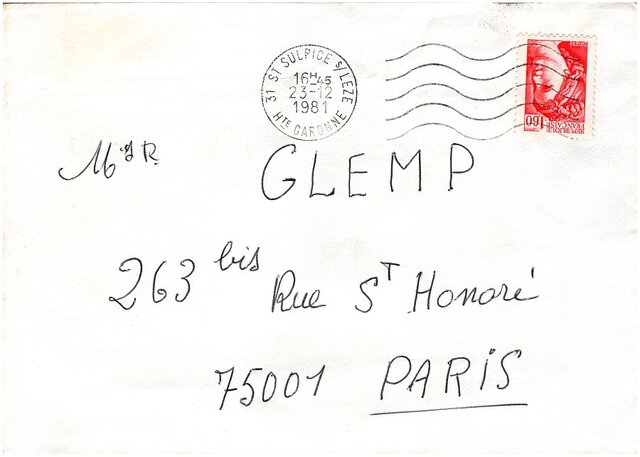 31 ST SULPICE S/LEZE
16H45
23-12
1981
HTE GARONNE
1,60
REPUBLIQUE
FRANCAISE
POSTES
Mgr GLEMP
263 bis Rue ST Honoré
75001 PARIS